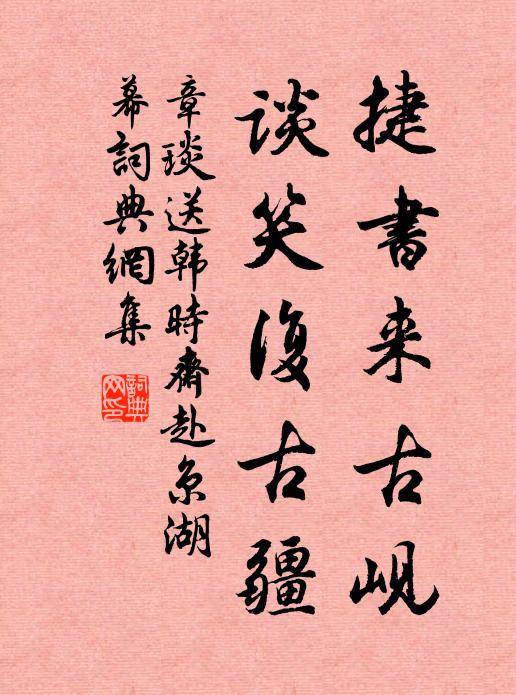 捷書来古峴
谈笑復古疆
章琰送韩時齋赴京湖
幕詞典網集
詞典网印